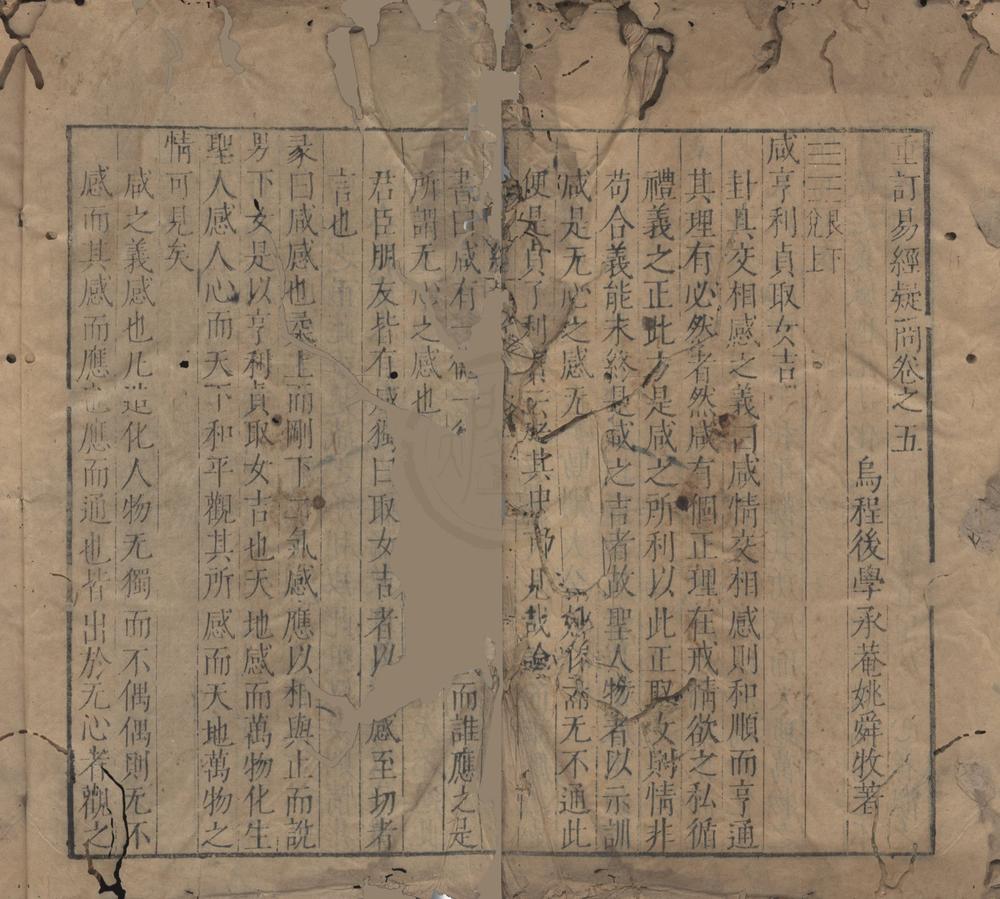 重訂易經疑問卷之五
烏程後學承菴姚舜牧著
艮下
兌上
咸亨利貞取女吉
卦具交相感之義曰咸情交相感則和順而亨通
其理有必然者然咸有個正理在戒情欲之私循
禮義之正此方是咸之所利以此正取女則情非
苟合義能永終是咸之吉者故聖人物者以示訓
咸是无心之感无 无不通此
便是貞了利 其中 見哉
書曰咸有一 而誰應之是
所謂无心之感也
君臣朋友皆有感獨曰取女吉者以 感至切者
言也
彖曰咸感也柔上而剛下二氣感應以相與止而說
男下女是以亨利貞取女吉也天地感而萬物化生
聖人感人心而天下和平觀其所感而天地萬物之
情可見矣
咸之義感也凡造化人物无獨而不偶偶則无不
感而其感而應也應而通也皆出於无心者觀之